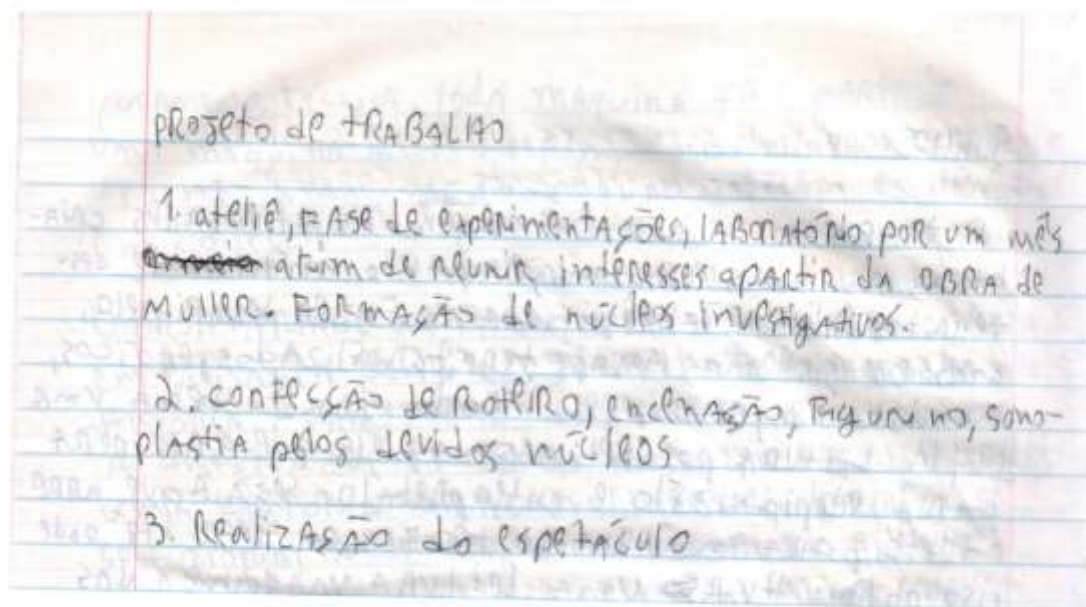 PROJETO de TRABALHO
1. ateliê, FASE de experimentAções, lABORAtóRio poR um mês
afim de ReuniR interesses apartiR dA OBRA de
MülleR. FORMAção de núcleos investigAtivos.
2. confecção de RoteiRO, encenAção, FiguRino, sono-
plAstiA pelos devidos núcleos
3. ReAlizAção do espetáculo